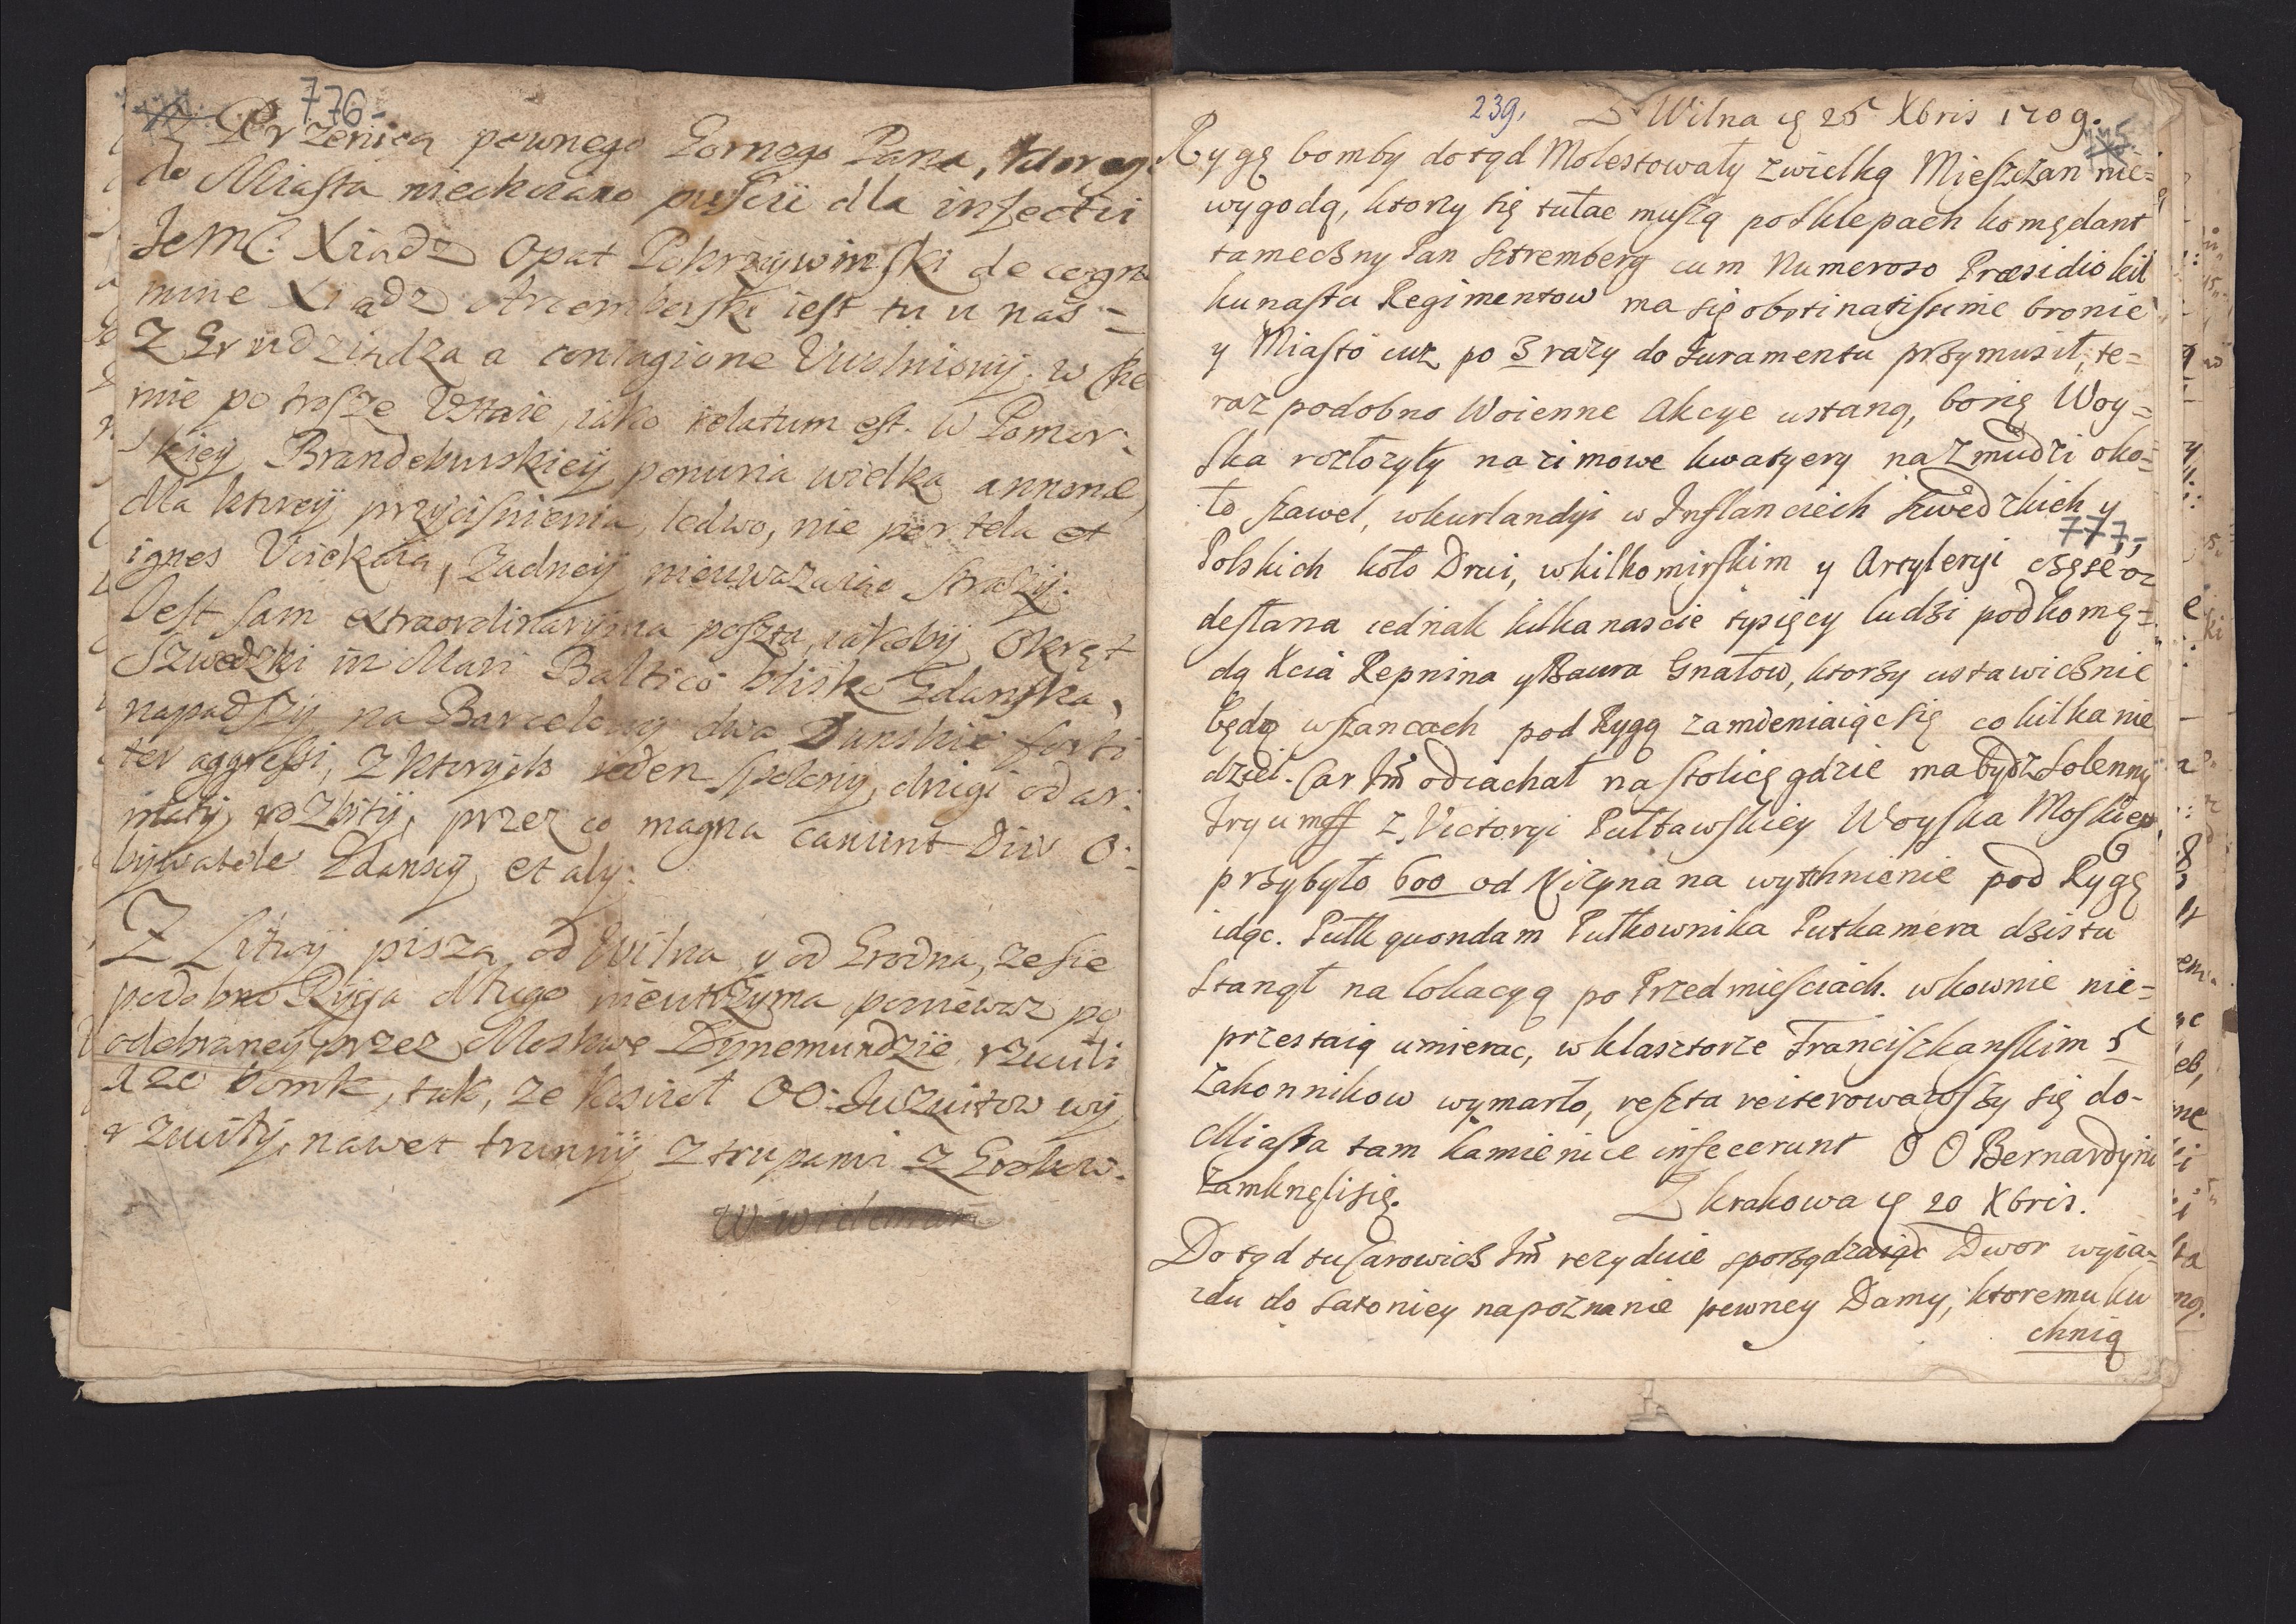 776-
Przenicą pewnego Gornego Pana, ktoreg
do Miasta niechciano puscic dla infectii
JeMC. Xiadz Opat Pokrzywinski de cogno
mine Xiadz iest tu u nas =
Z Grudziadza a contagione Uwolniony. w Che
mie po trosze Ustaie, iako relatum est. W Pomor:
skiey Brandeburskiey penuria wielka annonæ,
dla ktorey przycisnienia, ledwo, nie per tela et
ignes Uciekaia, zadney nieuwazaiac strazy.
Jest sam extraordinaryina poszta, iakoby Okręt
Szwedzki in Mari Baltico blisko Gdanska,
napadszy na dwa Dunskie forti
ter aggressi, z ktorych ieden spalony, drugi od ar:
maty rozbity, przez co magna canunt Diis O:
bywatele Gdanscy et alij.
Z Litwy pisza, od Wilna y od Grodna, ze sie
podobno Ryga dlugo nieutrzyma, poniewaz po
odebraney przez Moskwe Dynemundzie, rzucili
bomb, tak, ze kosciol OO: Iezuitow wy
rzucily, nawet trunny z trupami z Grobow.
239. Z Wilna ę 25 Xbris 1709.
Rygę bomby dotąd Molestowały zwielką Mieszczan nie=
wygodą, ktorzy się tułac muszą posklepach komędant
tamecżny Pan Sztremberg cum Numeroso Præsidio kil
kunastu Regimentow ma się obstinatissime bronic
y Miasto iuz po 3 razy do Juramentu przymusił, te=
raz podobno Woienne Akcye ustaną, bosię Woy=
ska rozłozyły na zimowe kwatyery na Zmudzi oko=
ło Szawel, wkurlandyi w Inflanciech Szwedzkich y
777,-
Polskich koło Drui, wkilkomirskim y Artyleryi częsc o=
desłana iednak kilkanascie tysięcy ludzi podkomę=
dą Xcia Repnina y Baura Gnałow, ktorzy ustawicznie
będą wszancach pod Rygą zamieniaiąc się co kilka nie
dziel. Car Jm̃ odiachał na stolicę gdzie ma bydz Solenny
Tryumff z Victoryi Pułtawskiey Woyska Moskiew.
przybyło 600 od Nizyna na wytchnienie pod Rygę
idąc. Pułk quondam Pułkownika Putkamera dzis tu
Stanął na lokacyą po Przedmiesciach. wkownie nie=
przestaią umierac, wklasztorze Franciszkanskim 5
zakonnikow wymarło, reszta reiterowawszy się do-
Miasta tam kamienice infecerunt O O Bernardyni
zamknęli się. Z krakowa ę 20 Xbris.
Dotąd tu Carowicz Jm̃ rezyduie sporządzaiąc Dwor wyia=
zdu do Saxoniey napoznanie pewney Damy, ktoremu ku
chnią